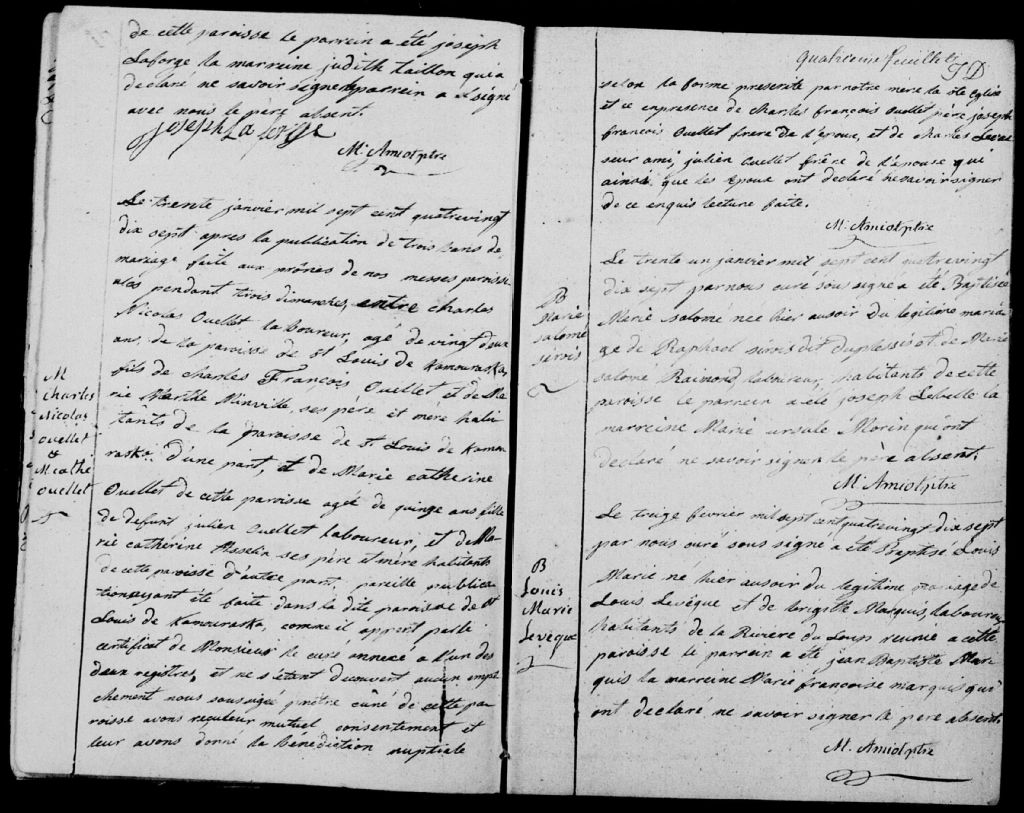 de cette paroisse le parrein a été joseph
Laforge la marreine judith taillon qui a
declaré ne savoir signer le parrein a signé
avec nous le père absent.
joseph La forge
M. Amiot ptre
Le trente janvier mil sept cent quatrevingt
dix sept apres la publication de trois bans de
mariage faite aux prônes de nos messes paroissi
ales pendant trois dimanches, entre charles
Nicolas Ouellet laboureur, agé de vingt deux
ans, de la paroisse de St Louis de Kamouraska,
fils de Charles François Ouellet et de Ma
rie Marthe Minville, ses père et mere habi
tants de la paroisse de St Louis de Kamou
raska d'une part, et de Marie catherine
Ouellet de cette paroisse agée de quinze ans fille
de defunt julien Ouellet Laboureur, et de Ma-
rie catherine Asselin ses père et mère habitants
de cette paroisse d'autre part, pareille publica
tion ayant été faite dans la dite paroisse de St
Louis de Kamouraska, comme il appert par le
certificat de Monsieur le curé annexé a l'un des
deux registres, et ne s'étant decouvert aucun empe
chement nous soussigné prêtre curé de cette pa
roisse avons reçu leur mutuel consentement et
leur avons donné la bénédiction nuptiale
M
Charles
Nicolas
Ouellet
&
M. cathe
Ouellet
quatrieme feuillet
JD
selon la forme prescrite par notre mere la ste Eglise
et ce en presence de Charles françois Ouellet père, joseph
françois Ouellet frere de l'epoux, et de Charles Levas
seur ami, julien Ouellet frêre de l'epouse qui
ainsi que les epoux ont declaré ne savoir signer
de ce enquis lecture faite.
M. Amiot ptre
Le trente un janvier mil sept cent quatrevingt
dix sept par nous curé sous signé a été Baptisée
Marie salomé née hier au soir du legitime maria
ge de Raphael sirois dit duplessis et de Marie
salomé Raimond, laboureur, habitants de cette
paroisse le parrein a été joseph Lebelle la
marreine Marie ursule Morin qui ont
declaré ne savoir signer le père absent.
M. Amiot ptre
B
Marie
salomé
sirois
Le treize fevrier mil sept cent quatrevingt dix sept
par nous curé sous signé a été Baptisé Louis
Marie né hier au soir du legitime mariage de
Louis Levêque et de brigitte Marquis, laboureur
habitants de la Riviere du Loup reunie a cette
paroisse le parrein a été jean Baptiste Mar
quis la marreine Marie françoise marquis qui
ont declaré ne savoir signer le père absent.
M. Amiot ptre
B
Louis
Marie
Levêque